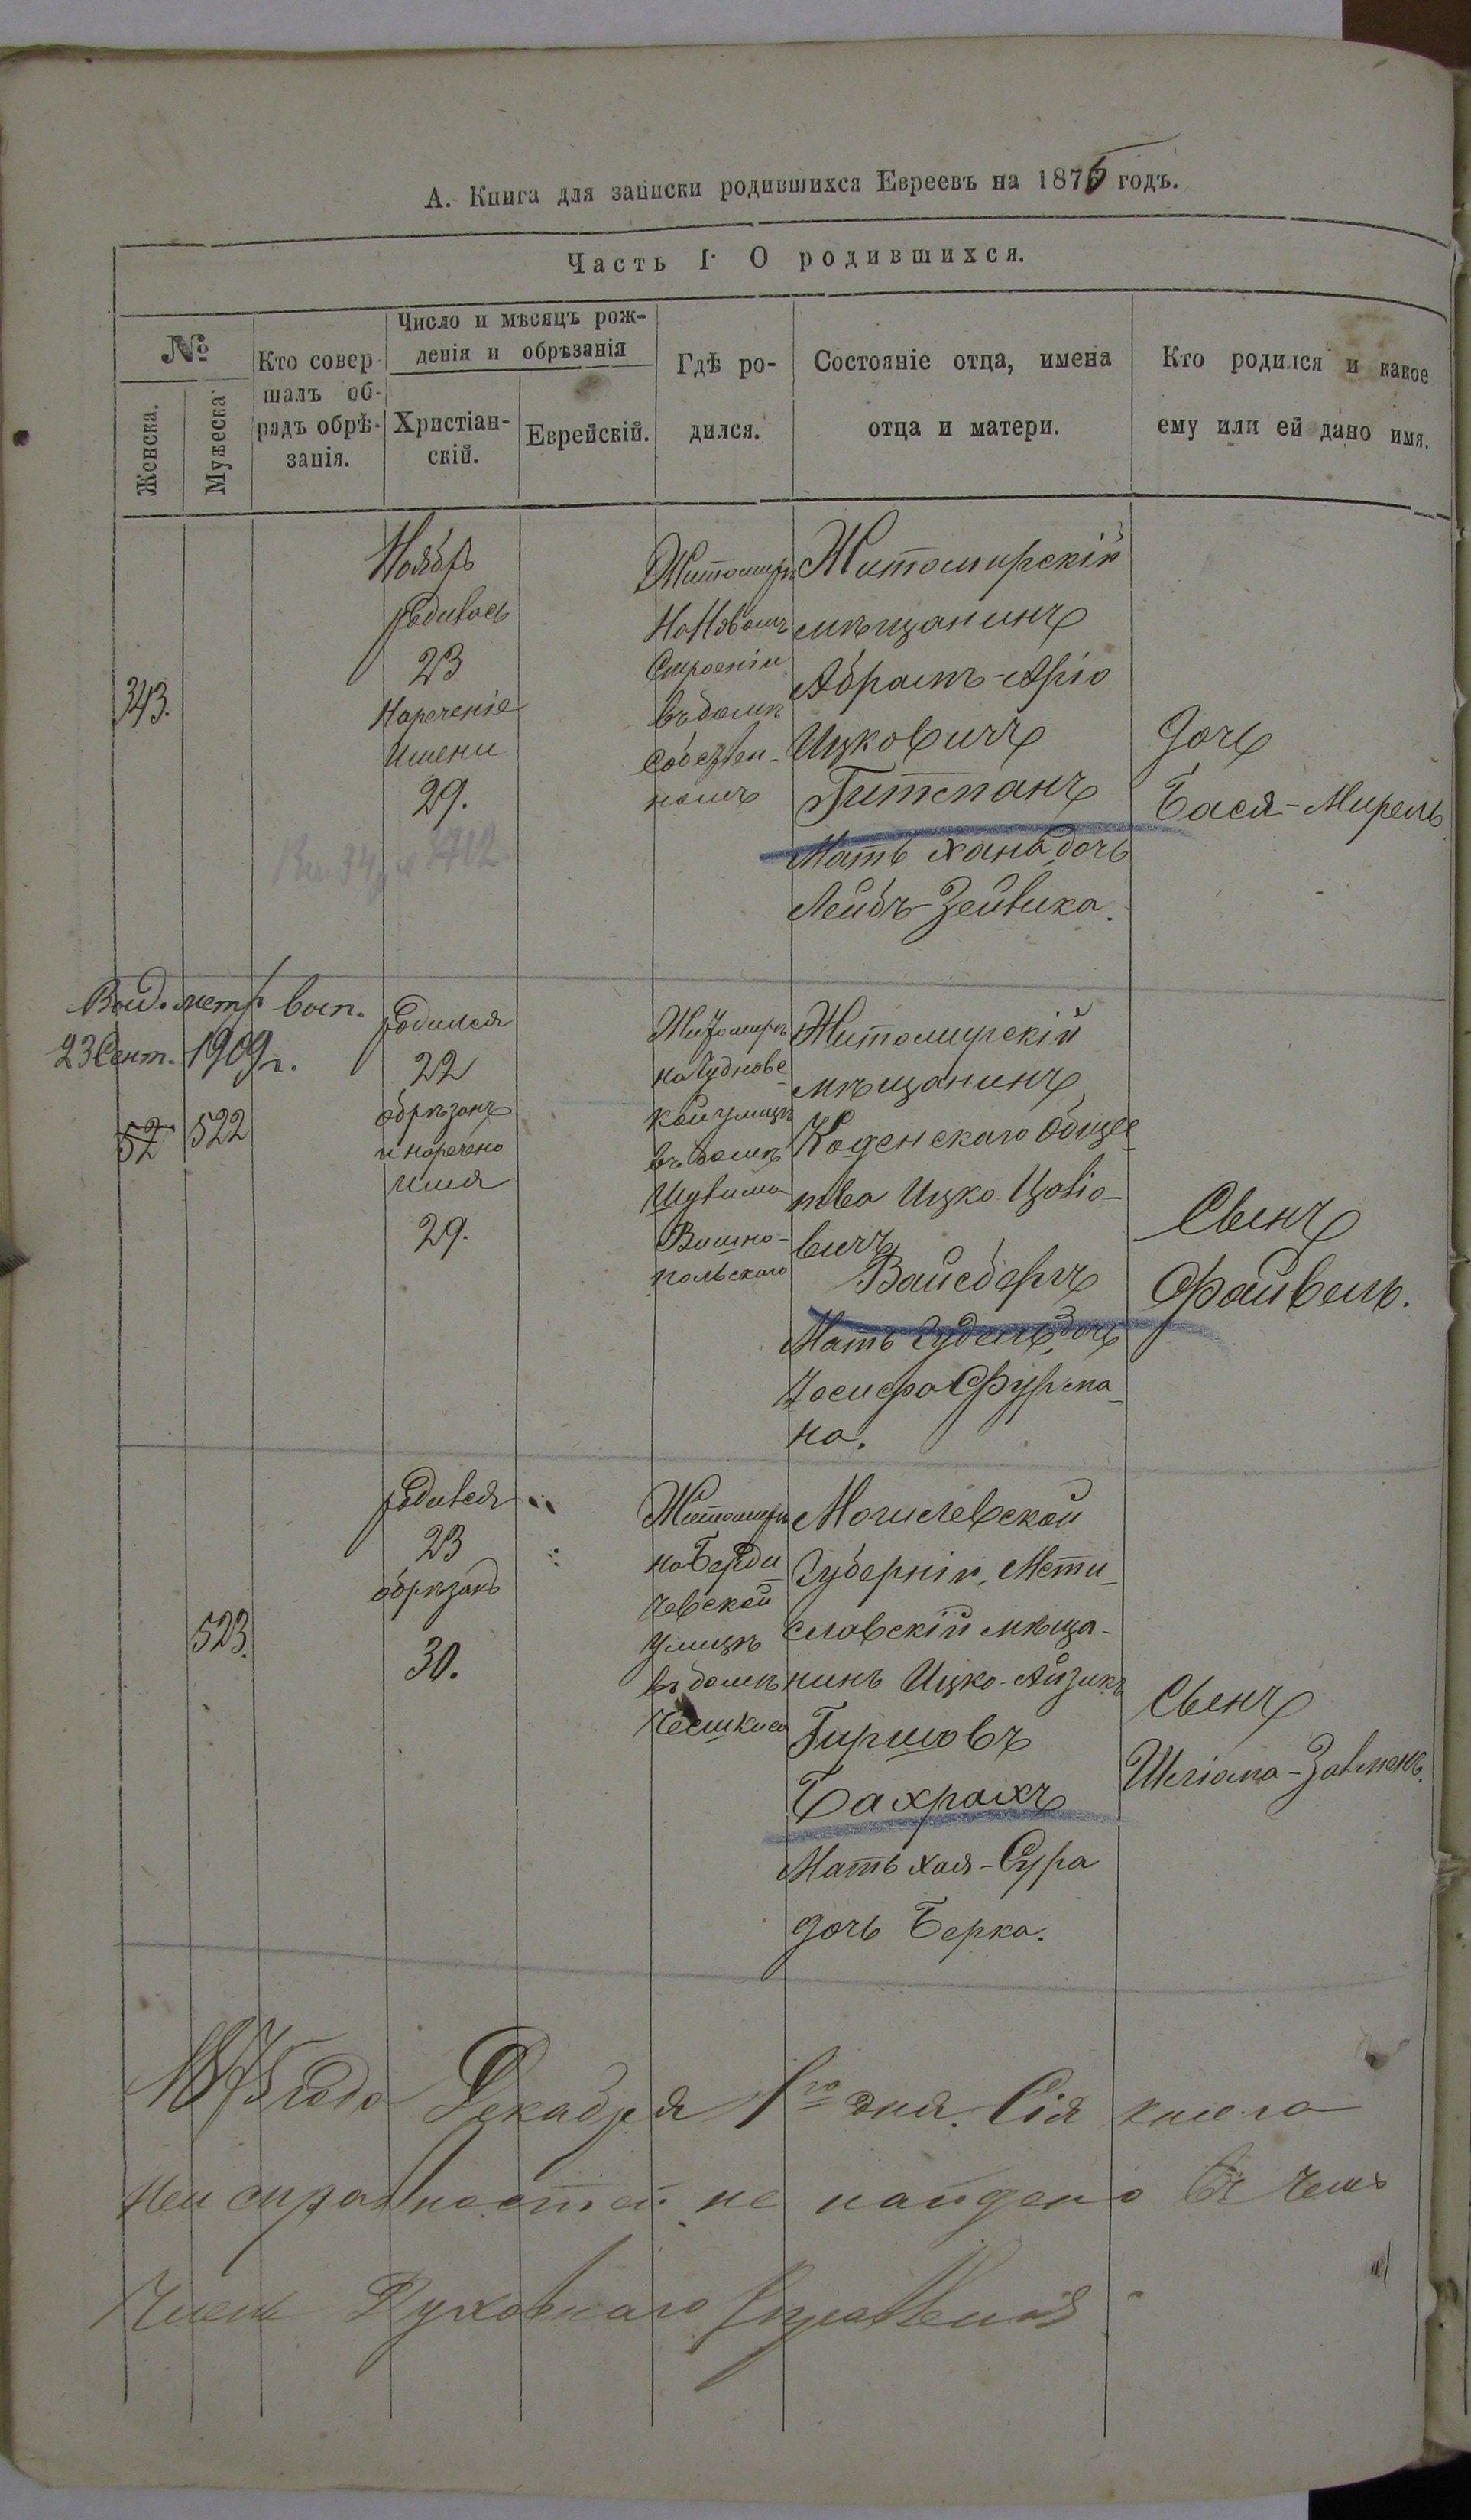 А. Книга для записки родившихся Евреевъ на 1875 годъ.
Часть I. О родившихся.
№
Женска.
Мужеска
Кто совер-
шалъ об-
рядъ обрѣ-
занія.
Число и мѣсяцъ рож-
денія и обрѣзанія
Христіан-
скій.
Еврейскій.
Гдѣ ро-
дился.
Состояніе отца, имена
отца и матери.
Кто родился и какое
ему или ей дано имя.
343.
Ноябрь
родилась
23
Нареченіе
Имени
29.
Житомирѣ
На Новомъ
Строеніи
въ домѣ
Собствен-
номъ
Житомирскій
мѣщанинъ
Абрамъ-Аріо
Ицковичъ
Гитманъ
Мать Хана дочь
Лейбъ-Зейвика.
Дочь
Бася-Мирель
Выд. метр. вып.
23 Сент. 1909 г.
52
522
родился
22
обрѣзанъ
и наречено
имя
29.
Житомирѣ
на Чудновс-
кой улицѣ
въ домѣ
Шувима
Вишно-
польскаго
Житомирскій
мѣщанинъ
Коденскаго общес-
тва Ицко Цовіо-
вичъ
Вайсбергъ
Мать Гудель, дочь
Іосифа Фурма-
на.
Сынъ
Файвель.
523.
родился
23
обрѣзанъ
30.
Житомирѣ
на Берди-
чевской
улицѣ
въ домѣ
Могилевской
Губерніи, Мсти-
славскій мѣща-
нинъ Ицко-Айзикъ
Гиршовъ
Бахрахъ
Мать Хая-Сура
дочь Берка.
Сынъ
Шліома-Залменъ.
1875 года Декабря 1го дня. Сія книга
неисправностей не найдено въ чемъ
Членъ Духовнаго Правленія